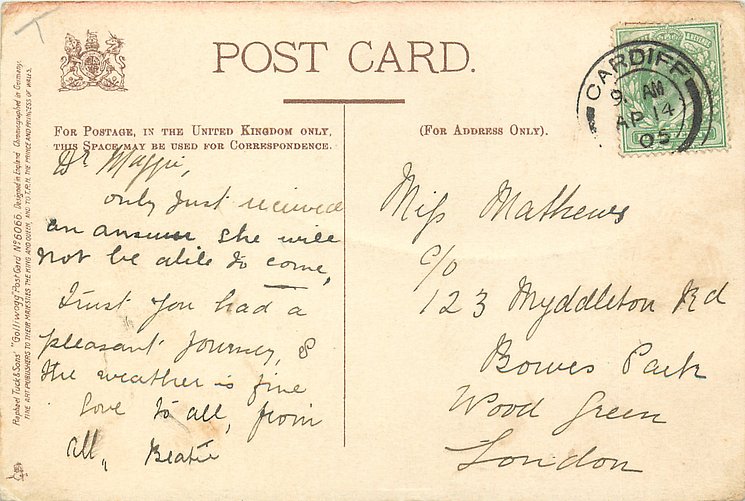 POST CARD.
FOR POSTAGE, IN THE UNITED KINGDOM ONLY,
THIS SPACE MAY BE USED FOR CORRESPONDENCE.
(FOR ADDRESS ONLY).
CARDIFF
9. AM
AP 14
05
Dr Maggie,
only just received
an answer she will
not be able to come,
Trust you had a
pleasant journey, &
the weather is fine
love to all, from
all, Beatie
Miss Mathews
c/o
123 Myddleton Rd
Bowes Park
Wood Green
London
Raphael Tuck & Sons' "Golliwogg" Post Card No 6066. Designed in England. Chromographed in Germany.
FINE ART PUBLISHERS TO THEIR MAJESTIES THE KING AND QUEEN, AND TO T.R.H. THE PRINCE AND PRINCESS OF WALES.